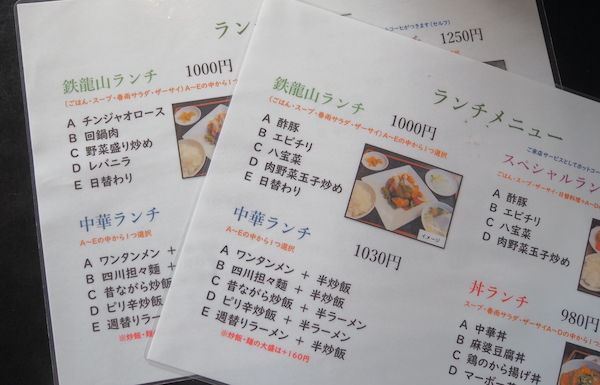 ラン
コーヒがつきます(セルフ)
1250円
鉄龍山ランチ
1000円
(ごはん・スープ・春雨サラダ・ザーサイ)A〜Eの中から1つ選択
A チンジャオロース
B 回鍋肉
C 野菜盛り炒め
D レバニラ
E 日替わり
中華ランチ
A〜Eの中から1つ選択
A ワンタンメン +
B 四川担々麺 +
C 昔ながら炒飯
D ピリ辛炒飯 +
E 週替りラーメン
※炒飯・麺の
ランチメニュー
鉄龍山ランチ
1000円
(ごはん・スープ・春雨サラダ・ザーサイ)A〜Eの中から1つ選択
A 酢豚
B エビチリ
C 八宝菜
D 肉野菜玉子炒め
E 日替わり
イメージ
中華ランチ
1030円
A〜Eの中から1つ選択
A ワンタンメン + 半炒飯
B 四川担々麺 + 半炒飯
C 昔ながら炒飯 + 半ラーメン
D ピリ辛炒飯 + 半ラーメン
E 週替りラーメン + 半炒飯
※炒飯・麺の大盛は+160円
ご来店サービスとしてホットコー
スペシャルラン
(ごはん・スープ・ザーサイ・日替料理+A〜D
A 酢豚
B エビチリ
C 八宝菜
D 肉野菜玉子炒め
丼ランチ
980円
スープ・春雨サラダ・ザーサイA〜Dの中から1つ選択
A 中華丼
B 麻婆豆腐丼
C 鶏のから揚げ丼
D マーボー